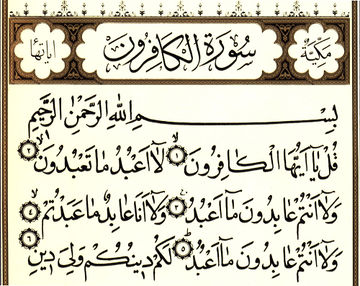 مكيّة سُورَةُ الْكَافِرُونَ اياتها
بِسْمِ اللهِ الرَّحْمٰنِ الرَّحِيمِ
قُلْ يَٓا اَيُّهَا الْكَافِرُونَ ١ لَٓا اَعْبُدُ مَا تَعْبُدُونَ ٢
وَلَٓا اَنْتُمْ عَابِدُونَ مَٓا اَعْبُدُ ٣ وَلَٓا اَنَا عَابِدٌ مَا عَبَدْتُمْ ٤
وَلَٓا اَنْتُمْ عَابِدُونَ مَٓا اَعْبُدُ ٥ لَكُمْ دِينُكُمْ وَلِيَ دِينِ ٦